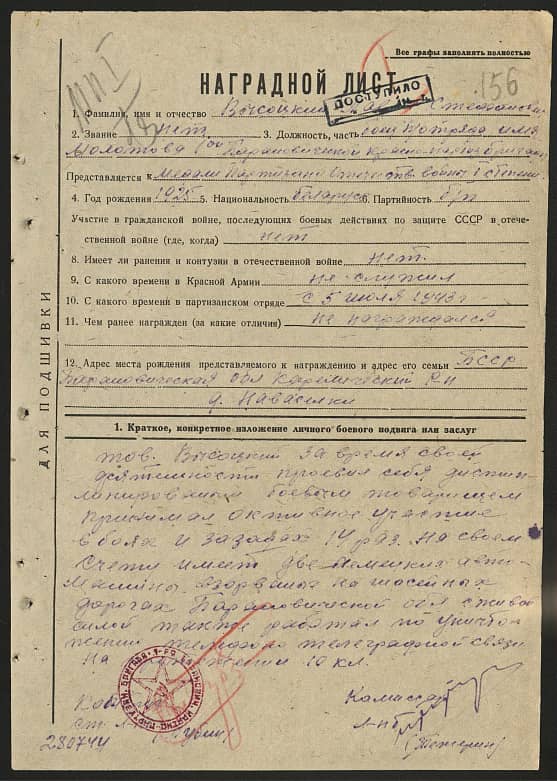 Все графы заполнять полностью
НАГРАДНОЙ ЛИСТ
ПОСТУПИЛО
156
1. Фамилия, имя и отчество Высоцкий
2. Звание нет 3. Должность, часть отряда им.
Молотова Барановичской Краснопартиз бригады
Представляется к Медали Партизану Отечеств войны I степени
4. Год рождения 1925 5. Национальность беларус 6. Партийность б/п
Участие в гражданской войне, последующих боевых действиях по защите СССР в отече-
ственной войне (где, когда) нет
8. Имеет ли ранения и контузии в отечественной войне нет.
9. С какого времени в Красной Армии не служил
10. С какого времени в партизанском отряде с 5 июля 1943 г
11. Чем ранее награжден (за какие отличия) не награждался
12. Адрес места рождения представляемого к награждению и адрес его семьи БССР
Барановическая обл Кареличский р-н
д.
ДЛЯ ПОДШИВКИ
1. Краткое, конкретное изложение личного боевого подвига или заслуг
тов. Высоцкий за время своей
деятельности проевил себя дисцип-
ланированым боевым товарищем
принимал октивное участие
в боях и засадах 14 раз. На своем
счету имеет две немецких авто-
машины взорваных на шосейных
дорогах Барановической обл с живой
силой также работал по уничто-
жению телефоно телеграфной связи
На протяжении 10 кл.
Комиссар
ст. л-т
л-т
280744